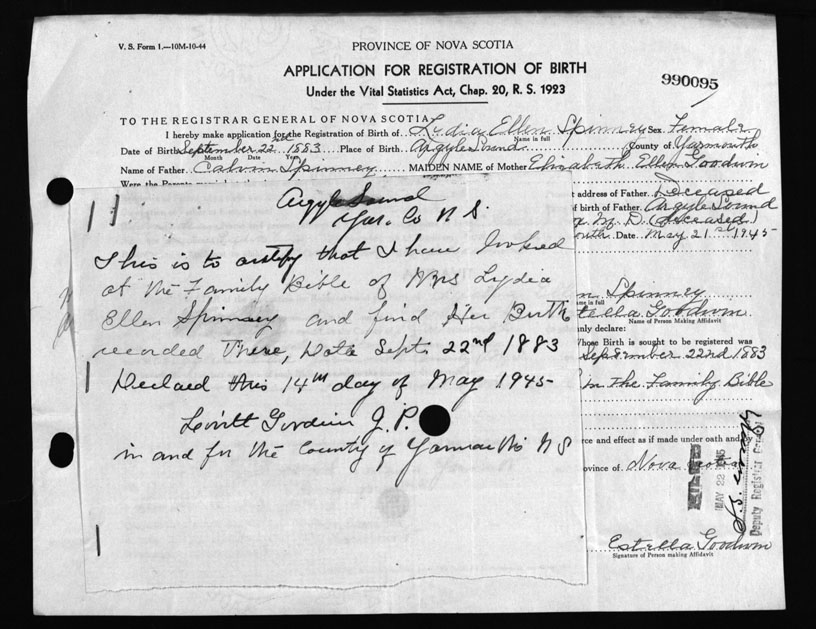 V. S. Form 1.—10M-10-44
PROVINCE OF NOVA SCOTIA
APPLICATION FOR REGISTRATION OF BIRTH
Under the Vital Statistics Act, Chap. 20, R. S. 1923
990095
TO THE REGISTRAR GENERAL OF NOVA SCOTIA
I hereby make application for the Registration of Birth of Lydia Ellen Spinney Sex Female
Name in full
Date of Birth September 22nd 1883 Place of Birth Argyle Sound County of Yarmouth
Month Date Year
Name of Father Calvin Spinney MAIDEN NAME of Mother Elizabeth Ellen Goodwin
Were the Parents
t address of Father Deceased
f birth of Father Argyle Sound
M. D. (deceased)
outh Date May 21st 1945
Argyle Sound
Yar. Co N S.
This is to certify that I have looked
at the Family Bible of Mrs Lydia
Ellen Spinney and find Her Birth
recorded There, Date Sept. 22nd 1883
Declaed this 14th day of May 1945
J. P.
in and for the County of Yarmouth N S
Spinney
me in full
stella Goodwin
Name of Person Making Affidavit
nly declare:
Whose Birth is sought to be registered was
September 22nd 1883
in The Family Bible
rce and effect as if made under oath and
ovince of Nova Scotia
FILED
MAY 22 1945
Deputy Registrar General
Estella Goodwin
Signature of Person making Affidavit